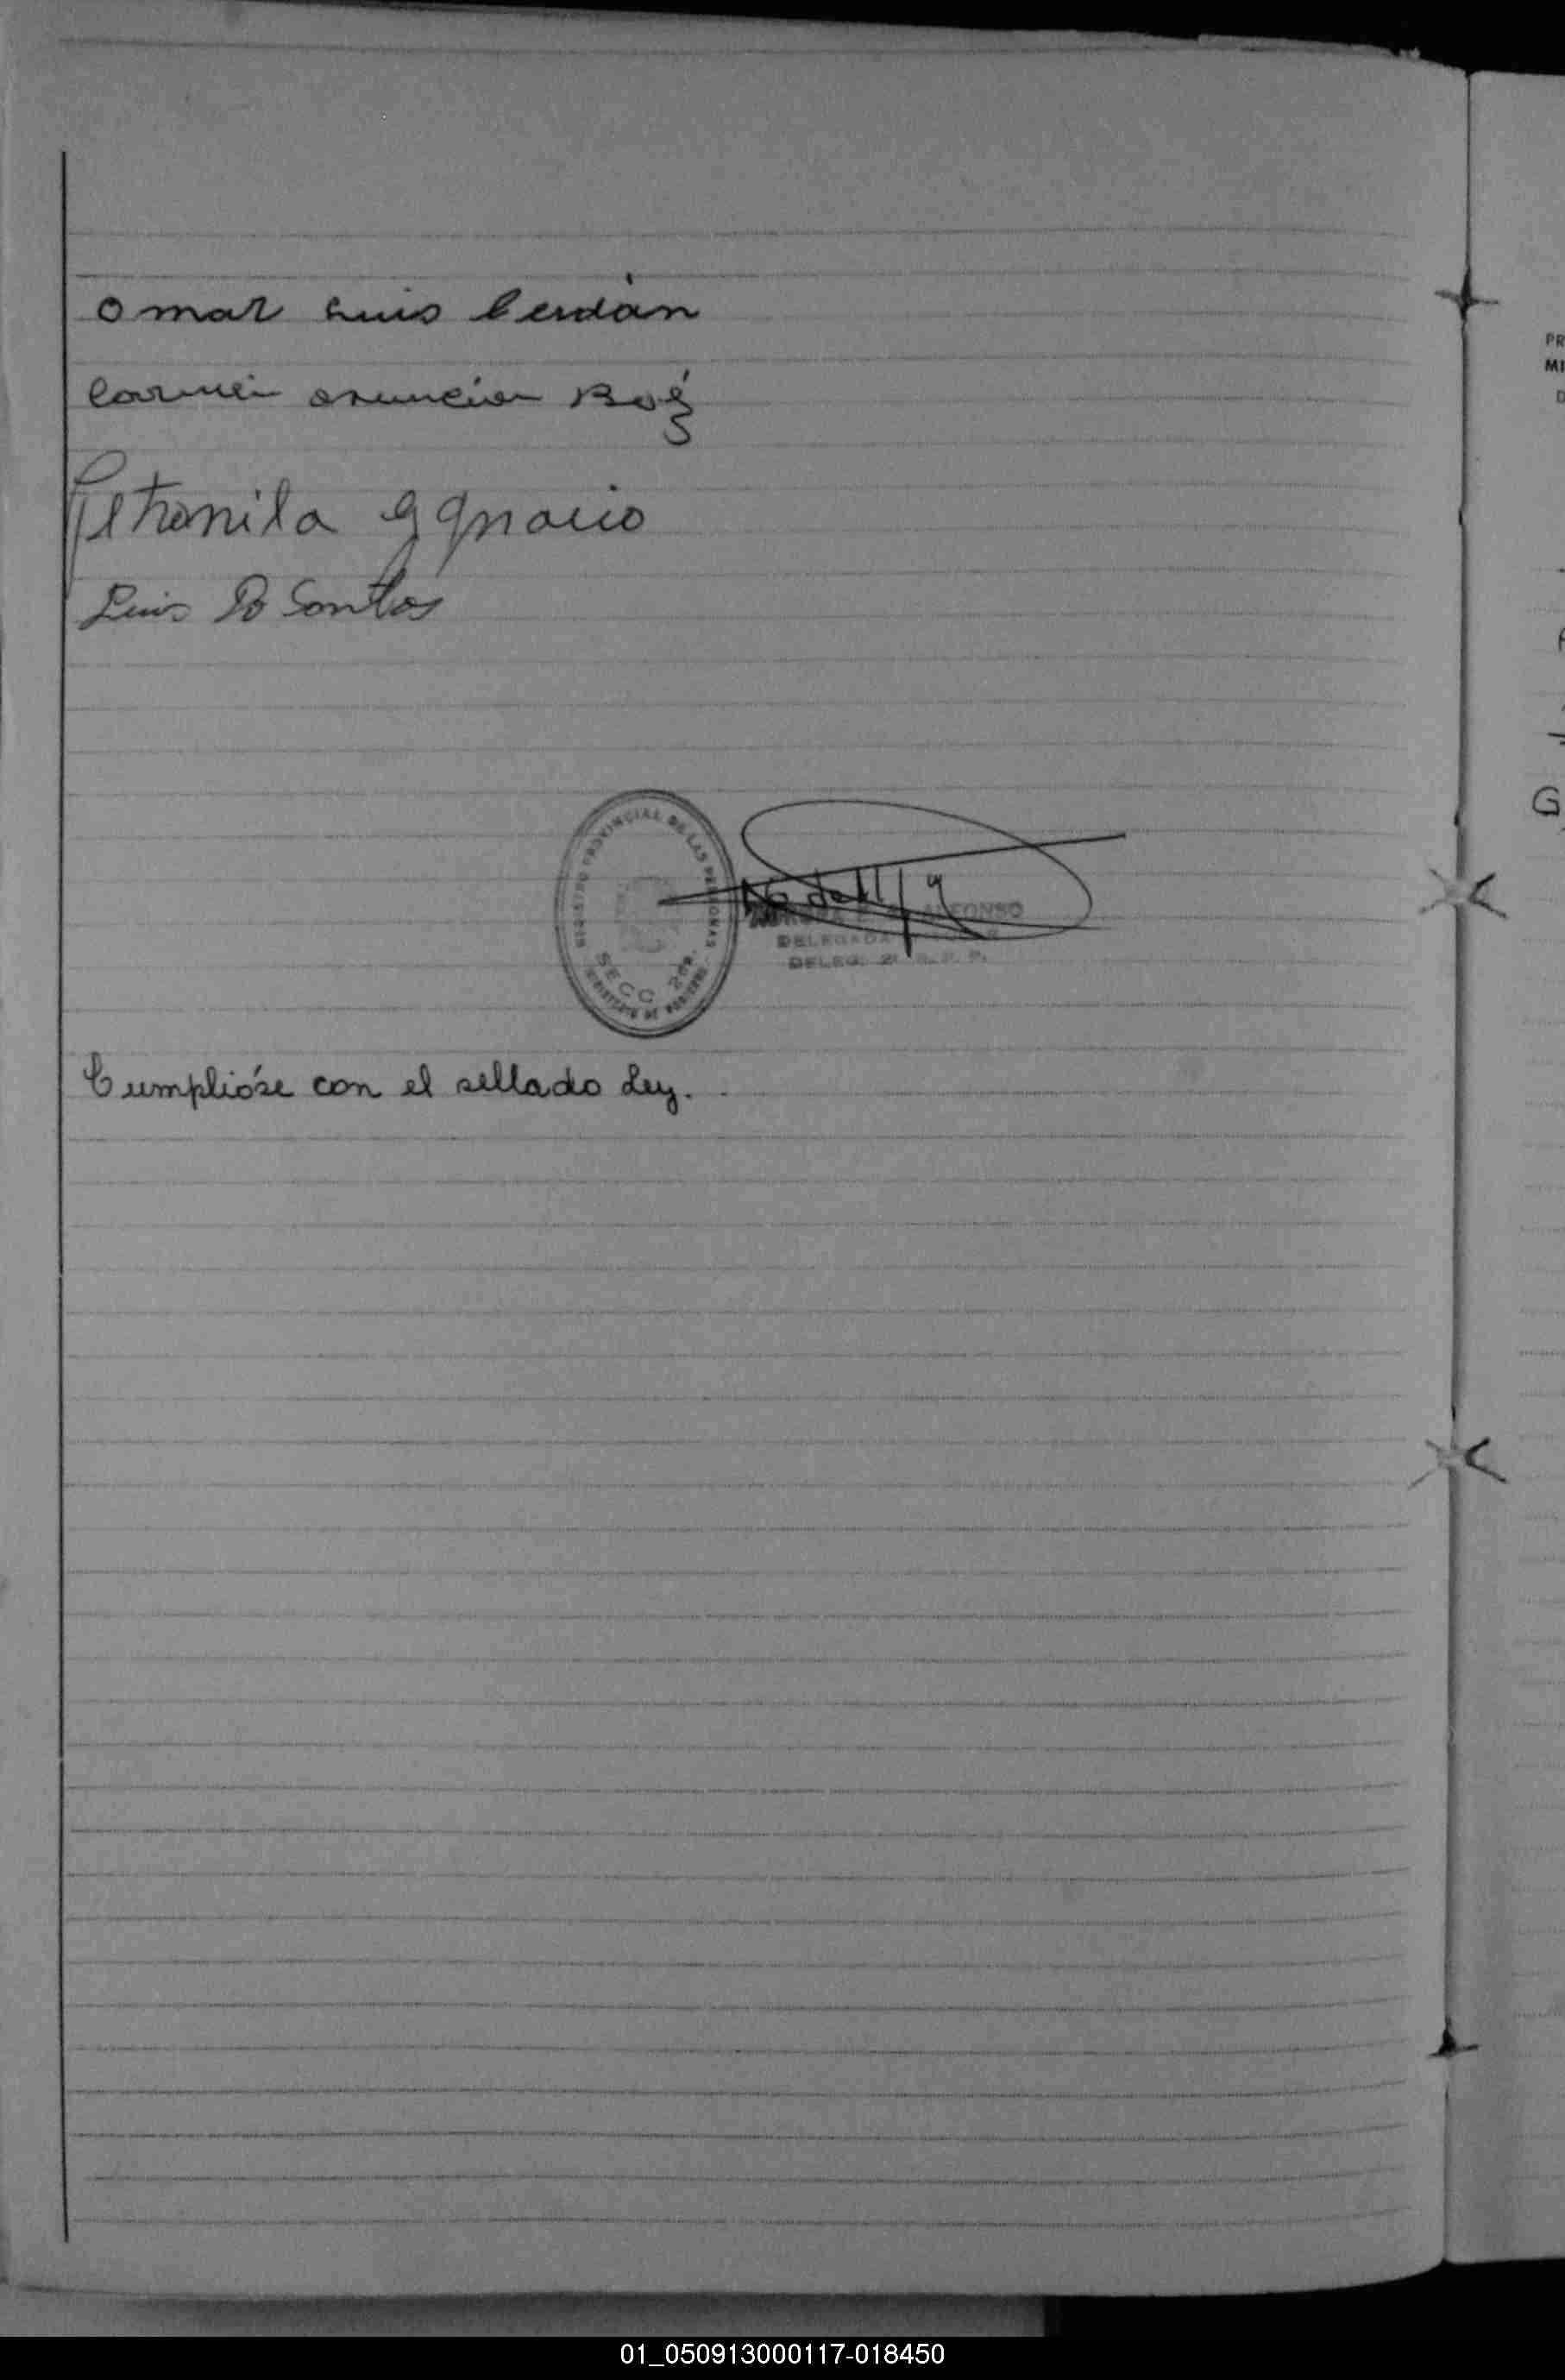 Omar Luis Cerdán
Carmen Asunción Boé
Petronila Ygnacio
Luis Do Santos
REGISTRO PROVINCIAL DE LAS PERSONAS
SECC. 2da.
MINISTERIO DE GOBIERNO
ALFONSO
DELEGADA
DELEG. 2
Cumplióse con el sellado Ley.
PR
MI
D
G
01_050913000117-018450